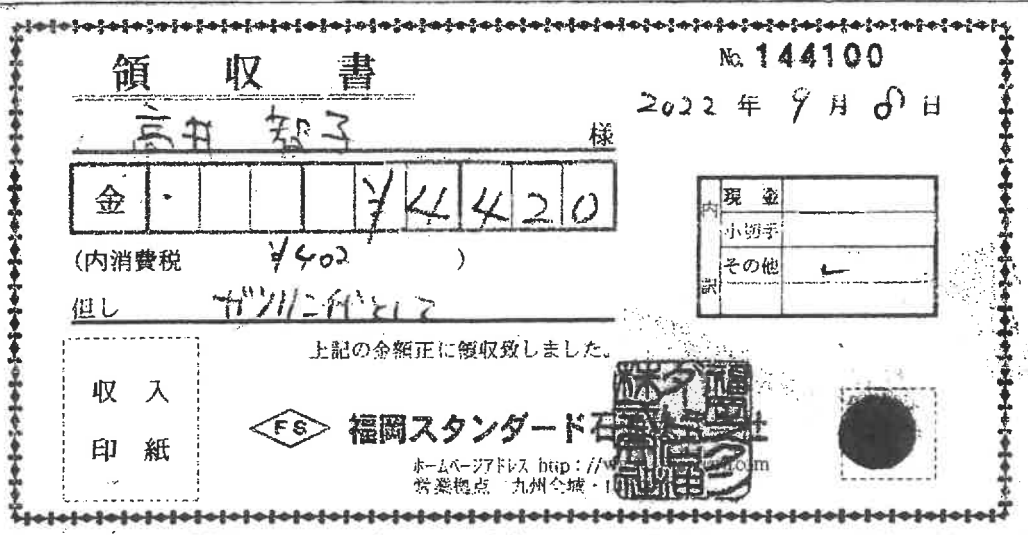 領収書
No. 144100
2022年9月8日
高井 智子 様
金 ¥4420
(内消費税 ¥402 )
但し ガソリン代として
内訳
現金
小切手
その他 ✓
上記の金額正に領収致しました。
収入
印紙
FS 福岡スタンダード石
ホームページアドレス http://w
営業拠点 九州全域・